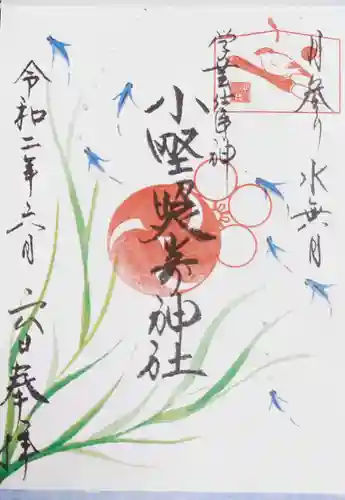 月参り 水無月
学業仕事神
小野照崎神社
令和二年六月六日奉拝